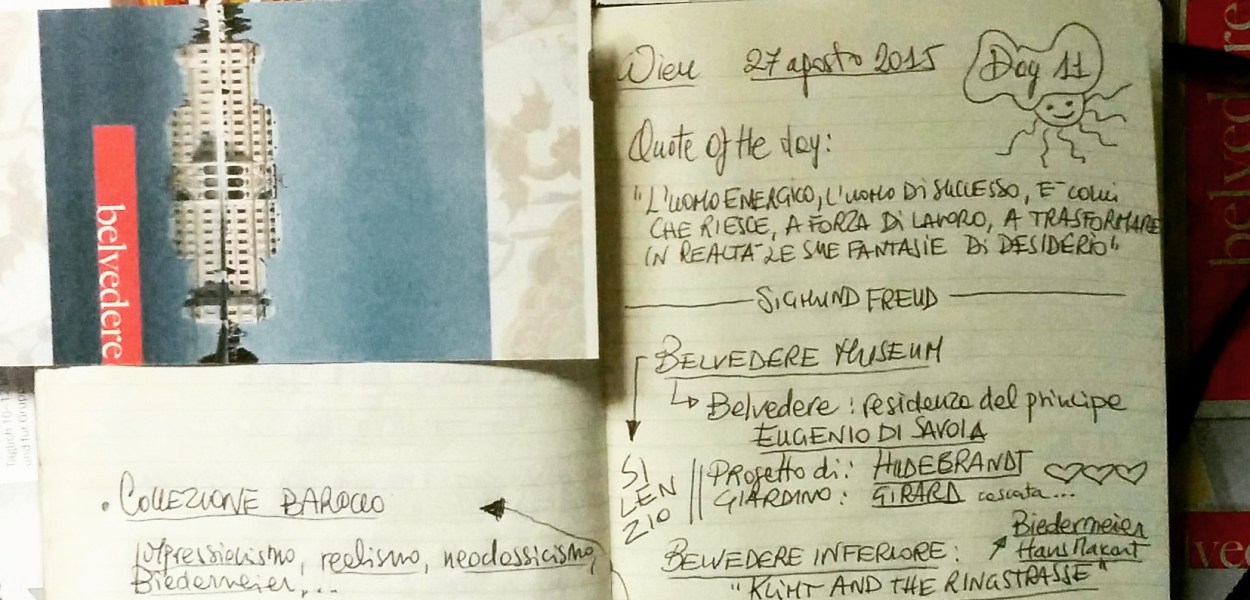 belvedere
Täglich 10-1
und für Grup
• COLLEZIONE BAROCCO
Impressionismo, realismo, neoclassicismo,
Biedermeier,...
Wien 27 agosto 2015 Day 11
Quote of the day:
"L'UOMO ENERGICO, L'UOMO DI SUCCESSO, È COLUI
CHE RIESCE, A FORZA DI LAVORO, A TRASFORMARE
IN REALTÀ LE SUE FANTASIE DI DESIDERIO"
SIGMUND FREUD
BELVEDERE MUSEUM
Belvedere: residenza del principe
EUGENIO DI SAVOIA
SI
LEN
ZIO
PROgetto di: HILDEBRANDT
GIARDINO: GIRARD cascata...
Biedermeier
Hans Makart
BELVEDERE INFERIORE:
"KLIMT AND THE RINGSTRASSE"
belvedere
vec